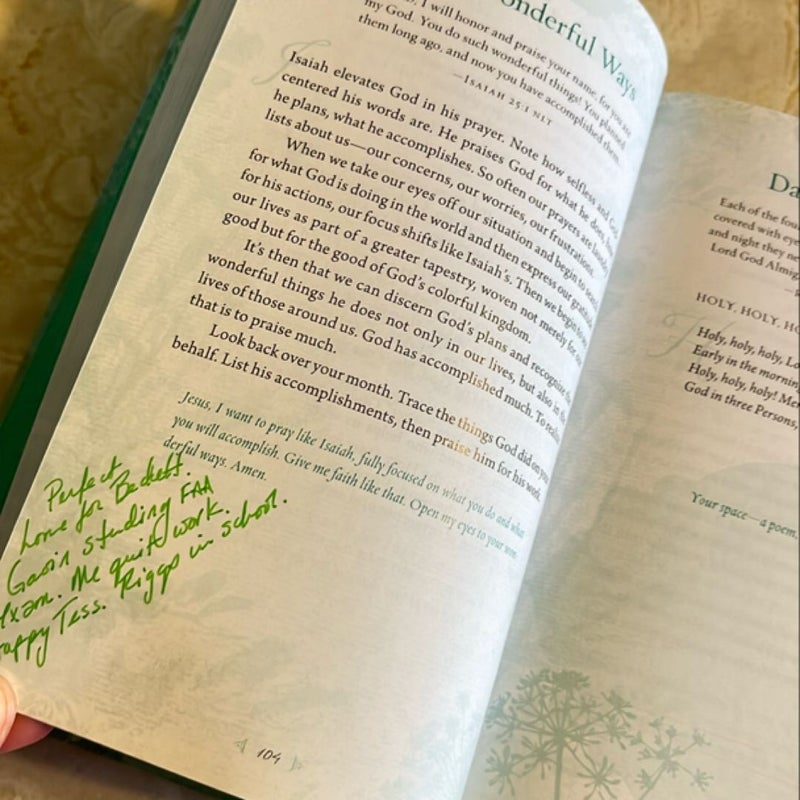 onderful Ways
I will honor and praise your name, for you are
my God. You do such wonderful things! You planned
them long ago, and now you have accomplished them.
—ISAIAH 25:1 NLT
Isaiah elevates God in his prayer. Note how selfless and God-
centered his words are. He praises God for what he does, how
he plans, what he accomplishes. So often our prayers are laundry
lists about us—our concerns, our worries, our frustrations.
When we take our eyes off our situation and begin to search
for what God is doing in the world and then express our gratitude
for his actions, our focus shifts like Isaiah's. Then we begin to see
our lives as part of a greater tapestry, woven not merely for our
good but for the good of God's colorful kingdom.
It's then that we can discern God's plans and recognize the
wonderful things he does not only in our lives, but also in the
lives of those around us. God has accomplished much. To realize
that is to praise much.
Look back over your month. Trace the things God did on your
behalf. List his accomplishments, then praise him for his work.
Jesus, I want to pray like Isaiah, fully focused on what you do and what
you will accomplish. Give me faith like that. Open my eyes to your won-
derful ways. Amen.
Perfect
home for Beckett.
Gavin studing FAA
exam. Me quit work.
appy Tess. Riggs in school.
104
Da
Each of the fou
covered with eye
and night they ne
Lord God Almig
HOLY, HOLY, HO
Holy, holy, holy, Lo
Early in the mornin
Holy, holy, holy! Mer
God in three Persons,
Your space—a poem,